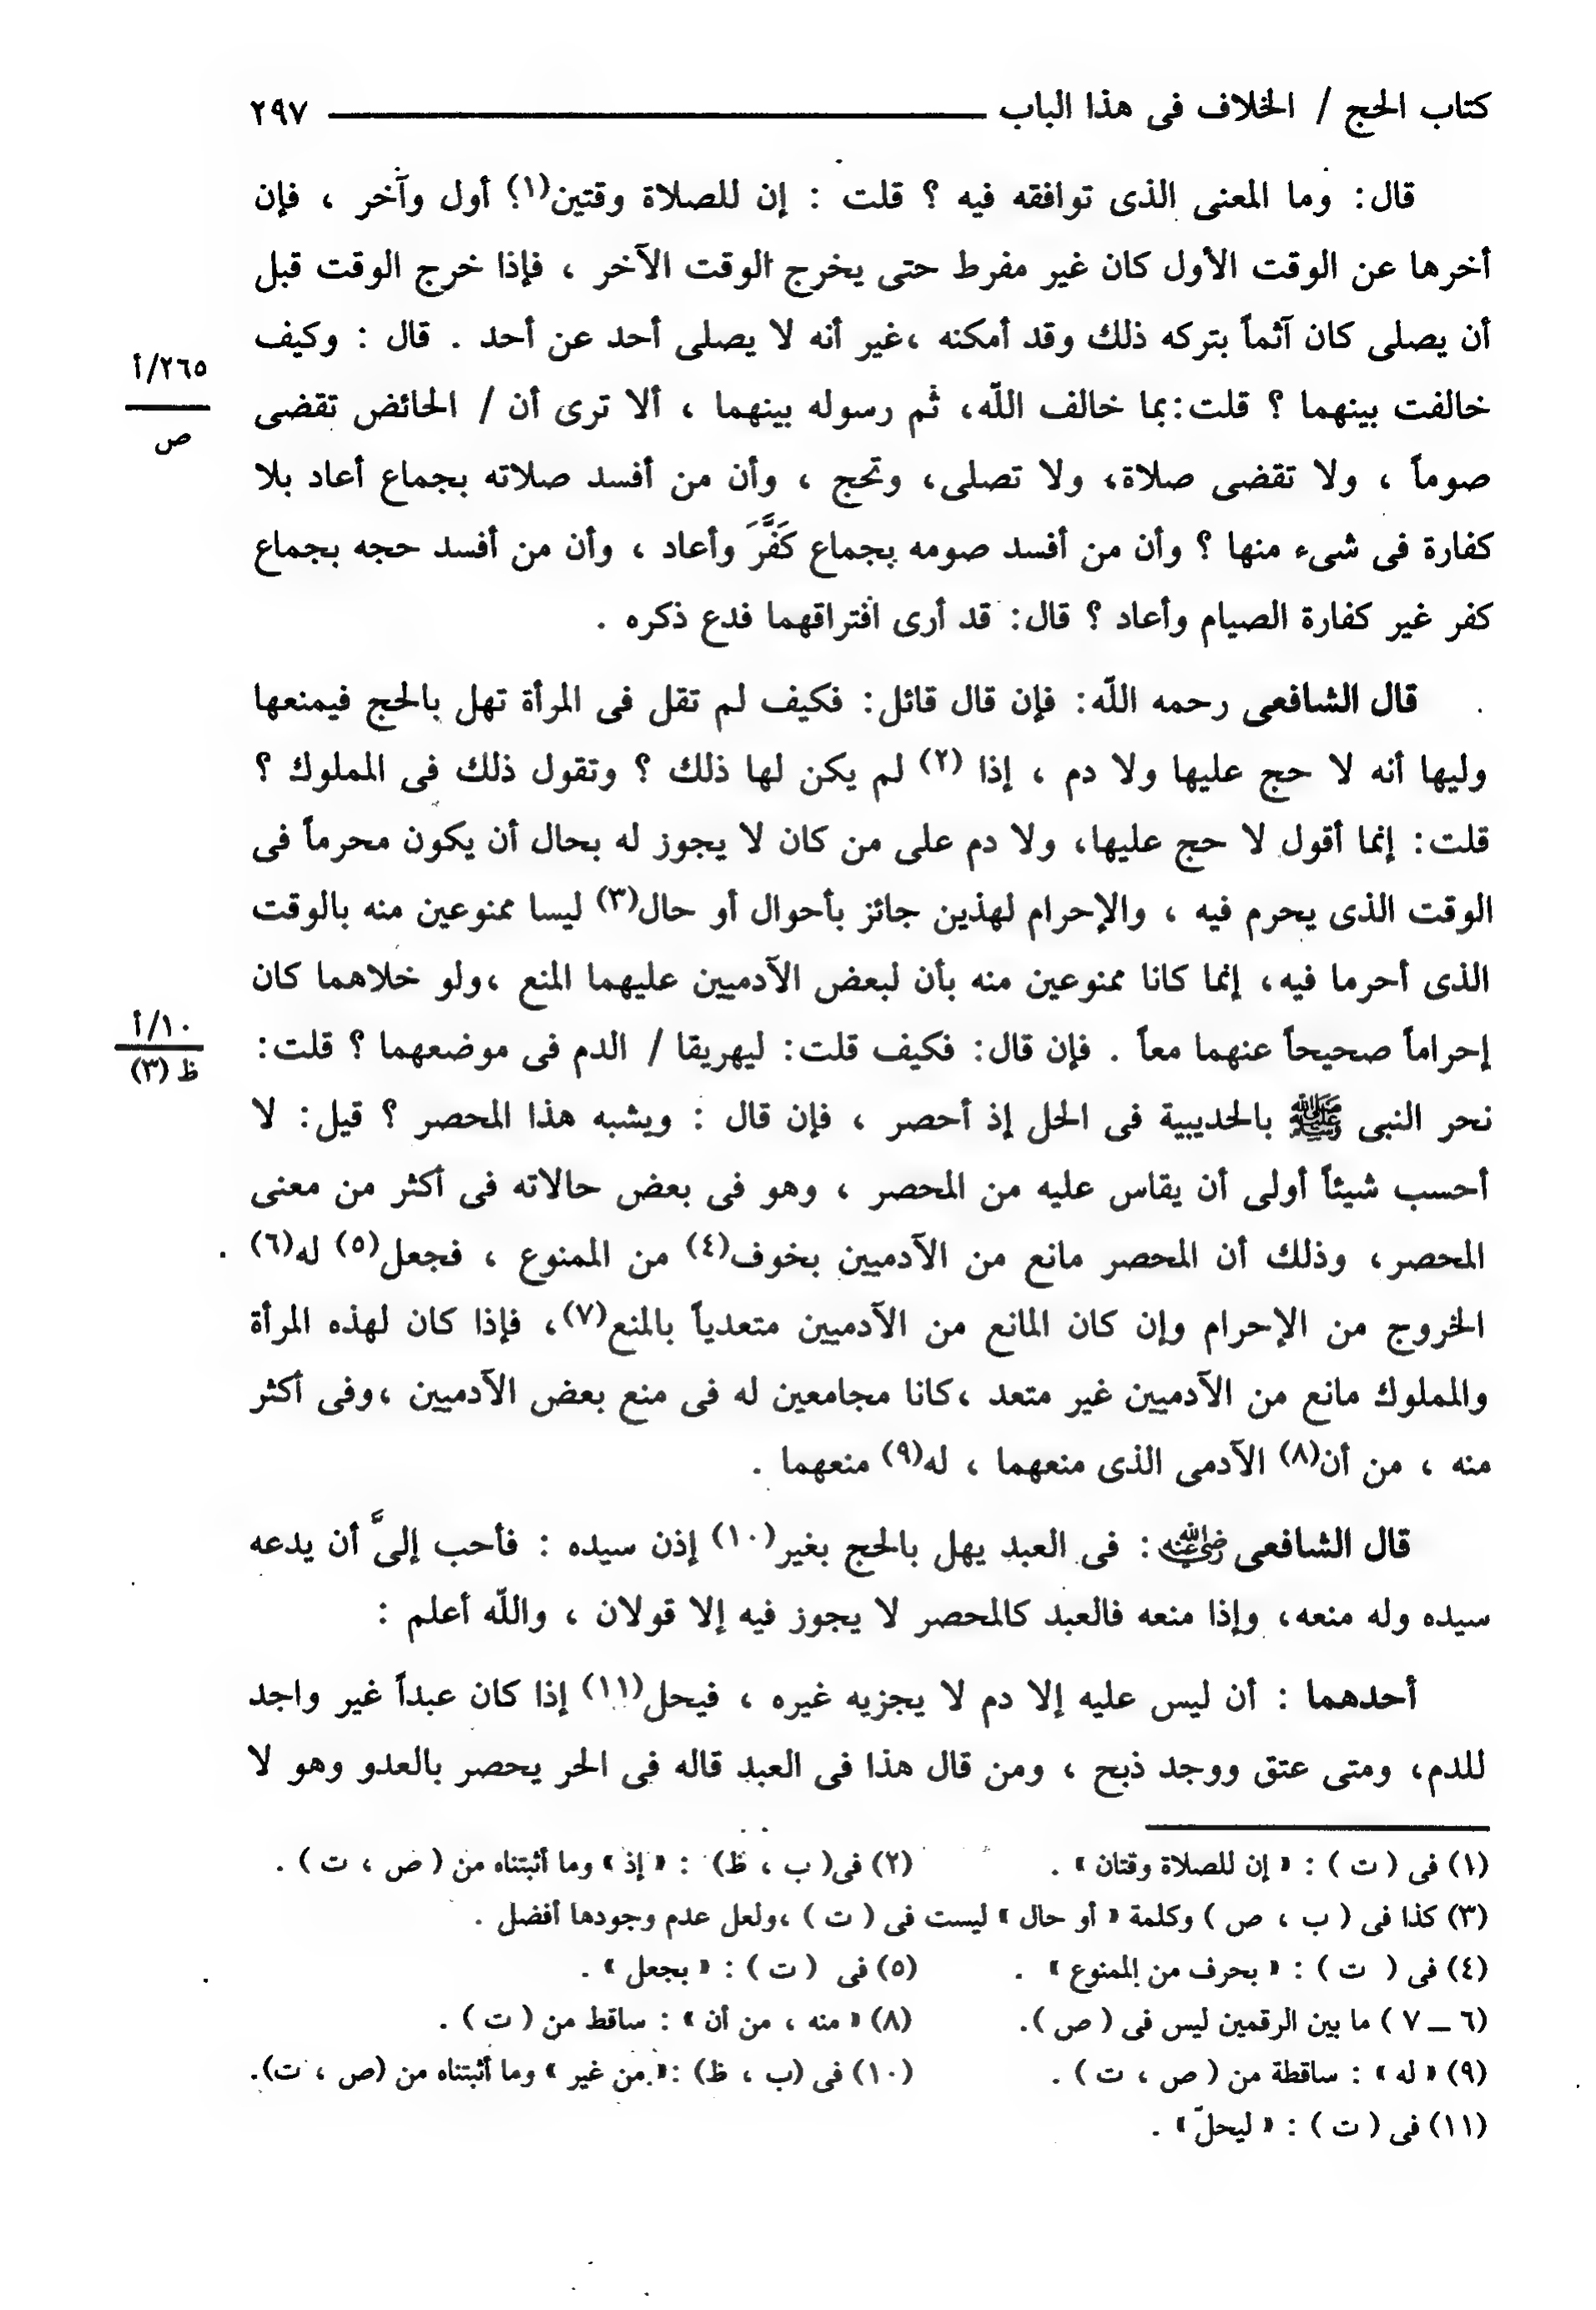 كتاب الحج / الخلاف فى هذا الباب ــــــــــــــــــــ ٢٩٧
قال: وما المعنى الذى توافقه فيه ؟ قلت : إن للصلاة وقتين(١)؟ أول وآخر ، فإن
أخرها عن الوقت الأول كان غير مفرط حتى يخرج الوقت الآخر ، فإذا خرج الوقت قبل
أن يصلى كان آثماً بتركه ذلك وقد أمكنه ،غير أنه لا يصلى أحد عن أحد . قال : وكيف
٢٦٥/أ
ص
خالفت بينهما ؟ قلت:بما خالف الله، ثم رسوله بينهما ، ألا ترى أن / الحائض تقضى
صوماً ، ولا تقضى صلاة، ولا تصلى، وتحج ، وأن من أفسد صلاته بجماع أعاد بلا
كفارة فى شىء منها ؟ وأن من أفسد صومه بجماع كَفَّرَ وأعاد ، وأن من أفسد حجه بجماع
كفر غير كفارة الصيام وأعاد ؟ قال: قد أرى افتراقهما فدع ذكره .
قال الشافعى رحمه الله: فإن قال قائل: فكيف لم تقل فى المرأة تهل بالحج فيمنعها
وليها أنه لا حج عليها ولا دم ، إذا (٢) لم يكن لها ذلك ؟ وتقول ذلك فى المملوك ؟
قلت: إنما أقول لا حج عليها، ولا دم على من كان لا يجوز له بحال أن يكون محرماً فى
الوقت الذى يحرم فيه ، والإحرام لهذين جائز بأحوال أو حال(٣) ليسا ممنوعين منه بالوقت
الذى أحرما فيه، إنما كانا ممنوعين منه بأن لبعض الآدميين عليهما المنع ،ولو خلاهما كان
١٠/أ
ظ (٣)
إحراماً صحيحاً عنهما معاً . فإن قال: فكيف قلت: ليهريقا / الدم فى موضعهما ؟ قلت:
نحر النبى ﷺ بالحديبية فى الحل إذ أحصر ، فإن قال : ويشبه هذا المحصر ؟ قيل: لا
أحسب شيئاً أولى أن يقاس عليه من المحصر ، وهو فى بعض حالاته فى أكثر من معنى
المحصر، وذلك أن المحصر مانع من الآدميين بخوف(٤) من الممنوع ، فجعل(٥) له(٦)
الخروج من الإحرام وإن كان المانع من الآدميين متعدياً بالمنع(٧)، فإذا كان لهذه المرأة
والمملوك مانع من الآدميين غير متعد ،كانا مجامعين له فى منع بعض الآدميين ،وفى أكثر
منه ، من أن(٨) الآدمى الذى منعهما ، له(٩) منعهما .
قال الشافعى رضي الله عنه : فى العبد يهل بالحج بغير(١٠) إذن سيده : فأحب إلىَّ أن يدعه
سيده وله منعه، وإذا منعه فالعبد كالمحصر لا يجوز فيه إلا قولان ، والله أعلم :
أحدهما : أن ليس عليه إلا دم لا يجزيه غيره ، فيحل(١١) إذا كان عبداً غير واجد
للدم، ومتى عتق ووجد ذبح ، ومن قال هذا فى العبد قاله فى الحر يحصر بالعدو وهو لا
(١) فى ( ت ) : « إن للصلاة وقتان » . (٢) فى( ب ، ظ) : « إذ » وما أثبتناه من ( ص ، ت ) .
(٣) كذا فى ( ب ، ص ) وكلمة « أو حال » ليست فى ( ت ) ،ولعل عدم وجودها أفضل .
(٤) فى ( ت ) : « بحرف من الممنوع » . (٥) فى ( ت ) : « بجعل » .
(٦ ــ ٧ ) ما بين الرقمين ليس فى ( ص ). (٨) « منه ، من أن » : ساقط من ( ت ) .
(٩) « له » : ساقطة من ( ص ، ت ) . (١٠) فى (ب ، ظ) :« من غير » وما أثبتناه من (ص ، ت).
(١١) فى ( ت ) : « ليحلّ » .